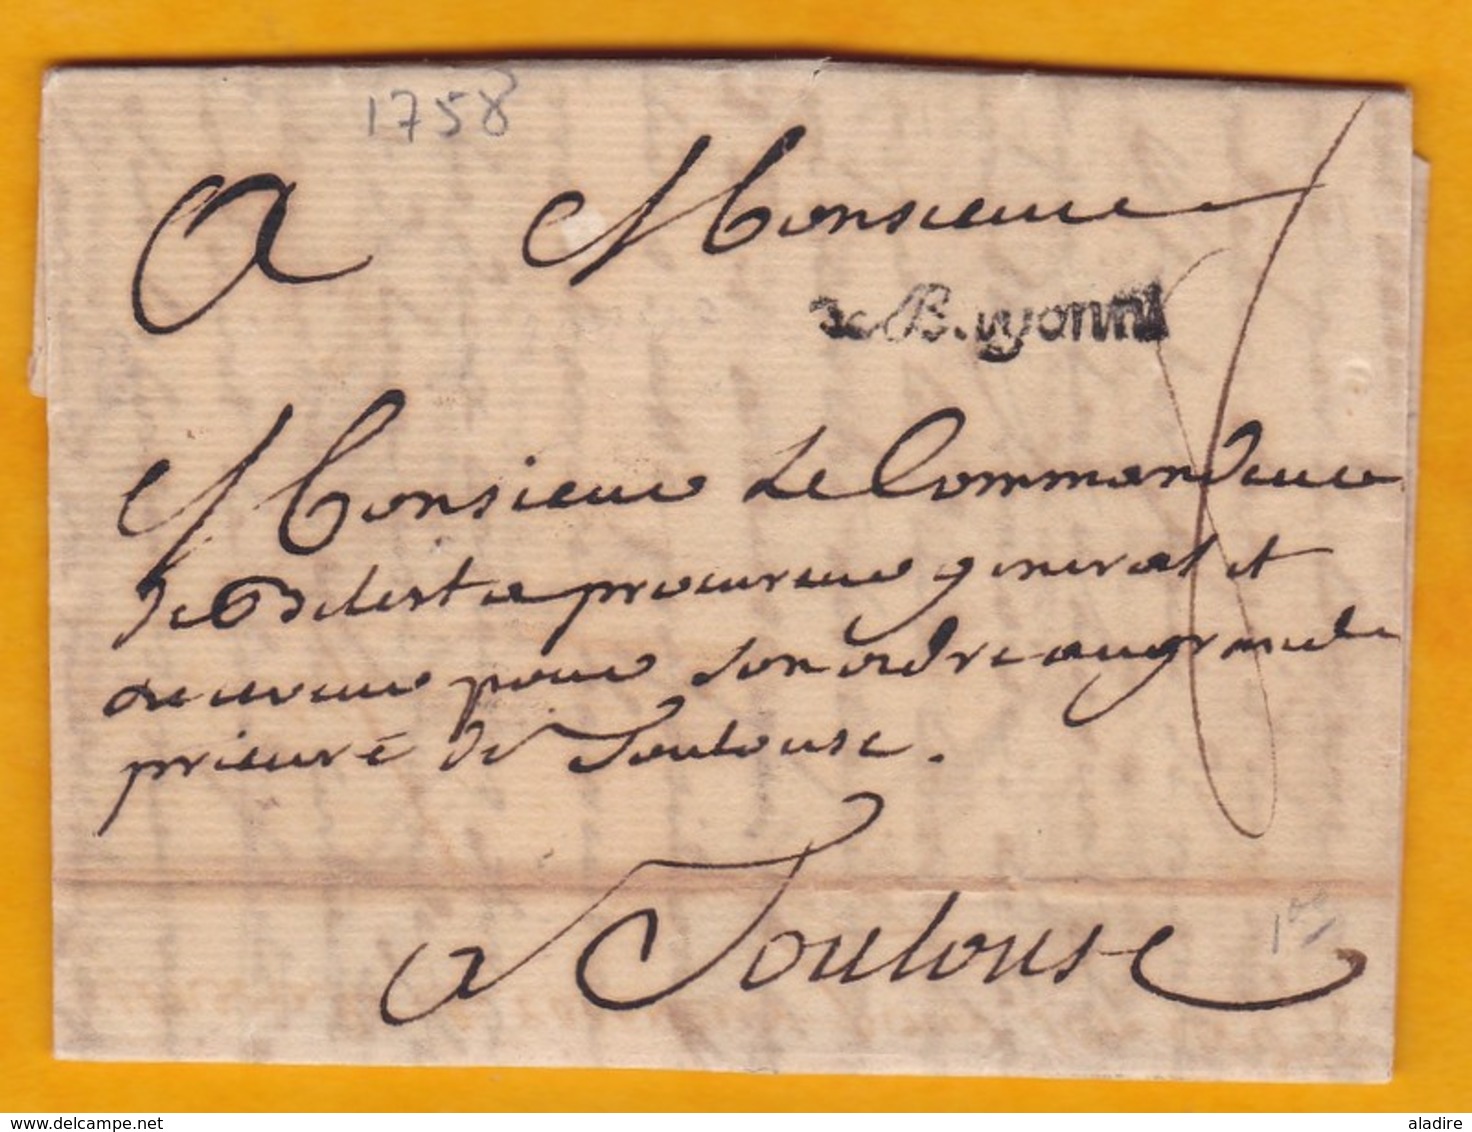 1758
A Monsieur
De Bayonne
Monsieur Le Commandeur
procureur general et
receveur pour son ordre au grand
prieuré de Toulouse.
a Toulouse
100
delcampe.net
aladire